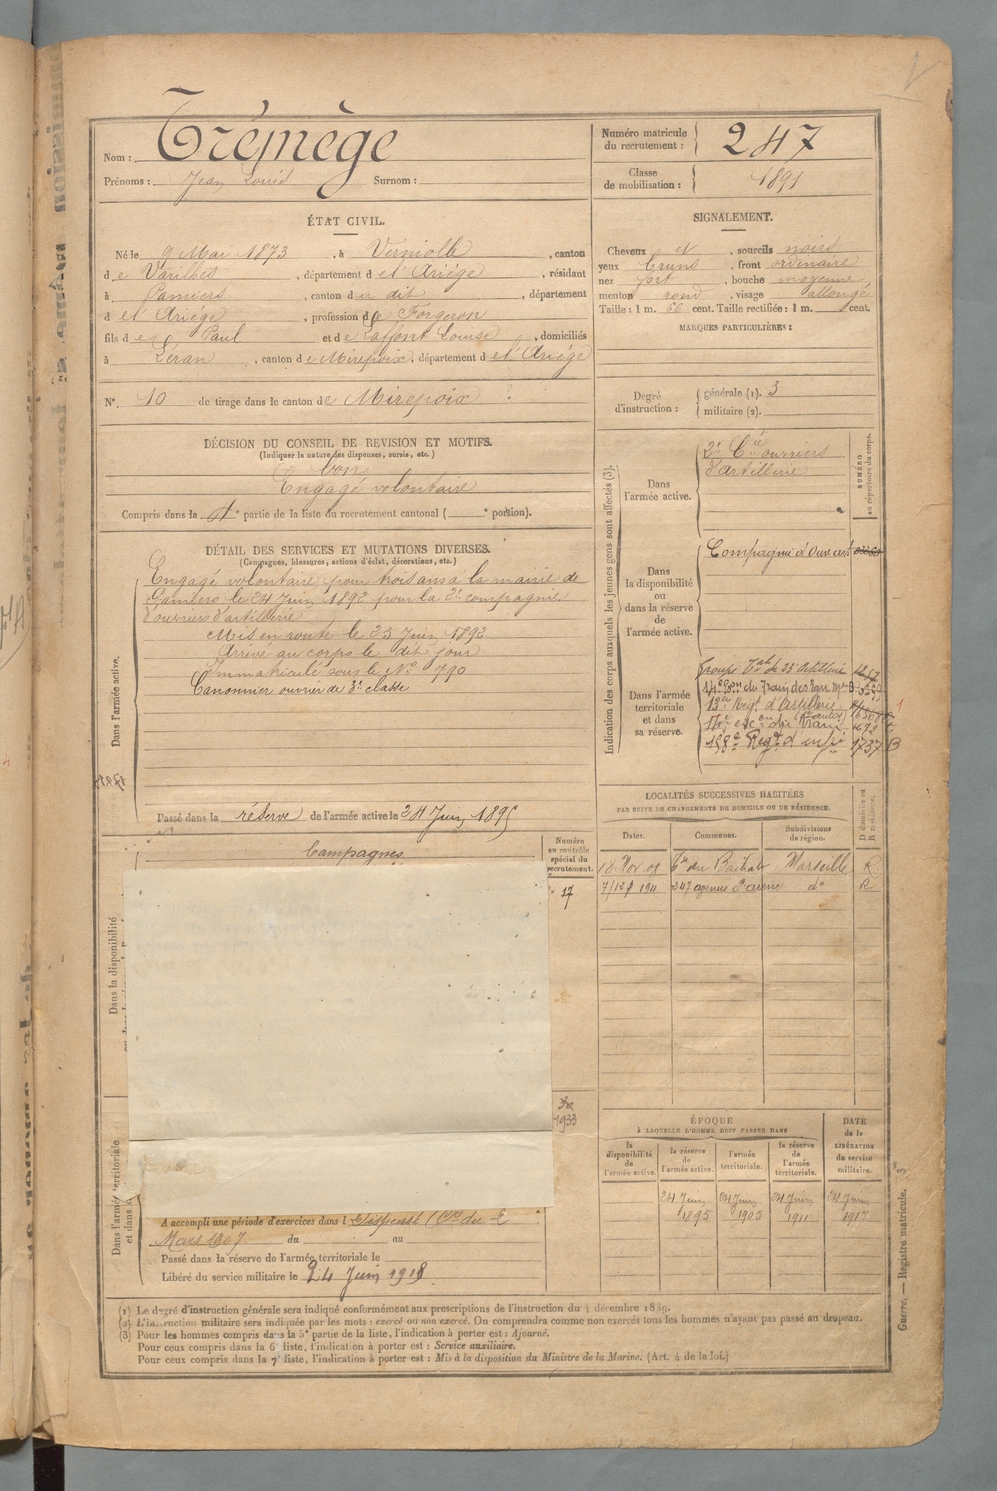 Nom : Trémège
Prénoms : Jean Louis Surnom :
Numéro matricule du recrutement : 247
Classe de mobilisation : 1891
ÉTAT CIVIL.
Né le 9 Mai 1873, à Verniolle, canton
de Varilhes, département de l'Ariège, résidant
à Pamiers, canton du dit, département
de l'Ariège, profession de Forgeron
fils de Paul et de Laffont Louise, domiciliés
à Léran, canton de Mirepoix, département de l'Ariège
N° 10 de tirage dans le canton de Mirepoix
SIGNALEMENT.
Cheveux et, sourcils noirs
yeux bruns, front ordinaire
nez fort, bouche moyenne
menton rond, visage allongé
Taille : 1 m. 66 cent. Taille rectifiée : 1 m. cent.
MARQUES PARTICULIÈRES :
Degré d'instruction :
générale (1). 3
militaire (2).
DÉCISION DU CONSEIL DE REVISION ET MOTIFS.
(Indiquer la nature des dispenses, sursis, etc.)
bon
Engagé volontaire
Compris dans la 1e partie de la liste du recrutement cantonal ( e portion).
DÉTAIL DES SERVICES ET MUTATIONS DIVERSES.
(Campagnes, blessures, actions d'éclat, décorations, etc.)
Engagé volontaire pour trois ans à la mairie de
Pamiers le 24 Juin 1892 pour la 2e compagnie
d'ouvriers d'artillerie
Mis en route le 25 Juin 1892
Arrivé au corps le dit jour
Immatriculé sous le No 790
Canonnier ouvrier de 3e classe
Dans l'armée active.
Passé dans la réserve de l'armée active le 24 Juin 1895
Campagnes
Numéro au contrôle spécial du recrutement.
17
Dans la disponibilité
1933
Dans l'armée territoriale
et dans s
A accompli une période d'exercices dans l
Mars 1907 du au
Passé dans la réserve de l'armée territoriale le
Libéré du service militaire le 24 Juin 1918
Indication des corps auxquels les jeunes gens sont affectés (3).
NUMÉRO au répertoire du corps.
Dans l'armée active.
2e Cie ouvriers
d'artillerie
Dans la disponibilité ou dans la réserve de l'armée active.
Compagnie d'Ouv art
Dans l'armée territoriale et dans sa réserve.
Groupe Tal du 23e Artillerie
13e Regt d'Artillerie
158e Regt d'infie 1737 B
LOCALITÉS SUCCESSIVES HABITÉES
PAR SUITE DE CHANGEMENTS DE DOMICILE OU DE RÉSIDENCE.
Dates. Communes. Subdivisions de région. D domicile ou R résidence.
18 Nov 09 Marseille R
1911 247 do R
ÉPOQUE
À LAQUELLE L'HOMME DOIT PASSER DANS
DATE de la LIBÉRATION du service militaire.
la disponibilité de l'armée active.
la réserve de l'armée active.
l'armée territoriale.
la réserve de l'armée territoriale.
24 Juin 24 Juin 24 Juin 24 Juin
1895 1905 1911 1917
(1) Le degré d'instruction générale sera indiqué conformément aux prescriptions de l'instruction du 4 décembre 1889.
(2) L'instruction militaire sera indiquée par les mots : exercé ou non exercé. On comprendra comme non exercés tous les hommes n'ayant pas passé au drapeau.
(3) Pour les hommes compris dans la 5e partie de la liste, l'indication à porter est : Ajourné.
Pour ceux compris dans la 6e liste, l'indication à porter est : Service auxiliaire.
Pour ceux compris dans la 7e liste, l'indication à porter est : Mis à la disposition du Ministre de la Marine. (Art. 4 de la loi.)
Guerre. — Registre matricule. 3